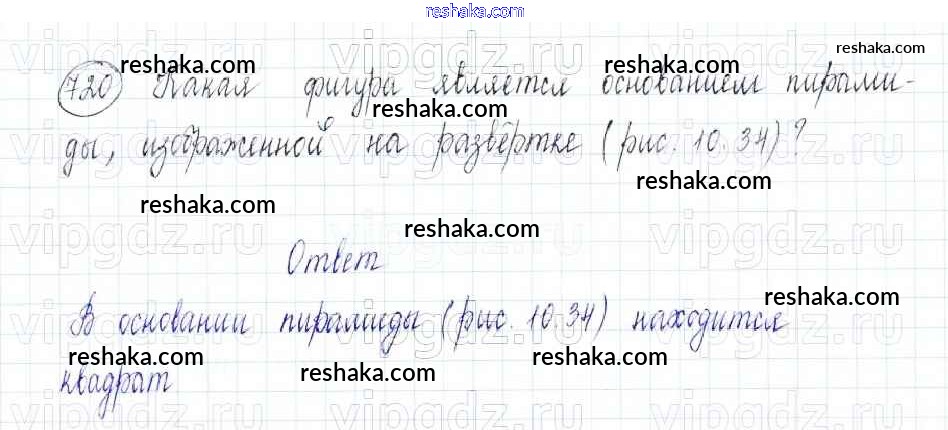 reshaka.com
720 Какая фигура является основанием пирами-
ды, изображенной на развёртке (рис. 10.34)?
Ответ
В основании пирамиды (рис. 10.34) находится
квадрат
reshaka.com
reshaka.com
reshaka.com
reshaka.com
reshaka.com
reshaka.com
reshaka.com
reshaka.com
reshaka.com
reshaka.com
reshaka.com
reshaka.com
vipgdz.ru
vipgdz.ru
vipgdz.ru
vipgdz.ru